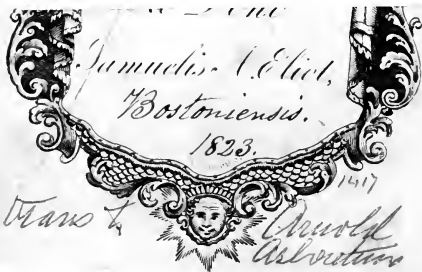 Samuelis A. Eliot,
Bostoniensis.
1823.
1417
Trans to
Arnold
Arboretum